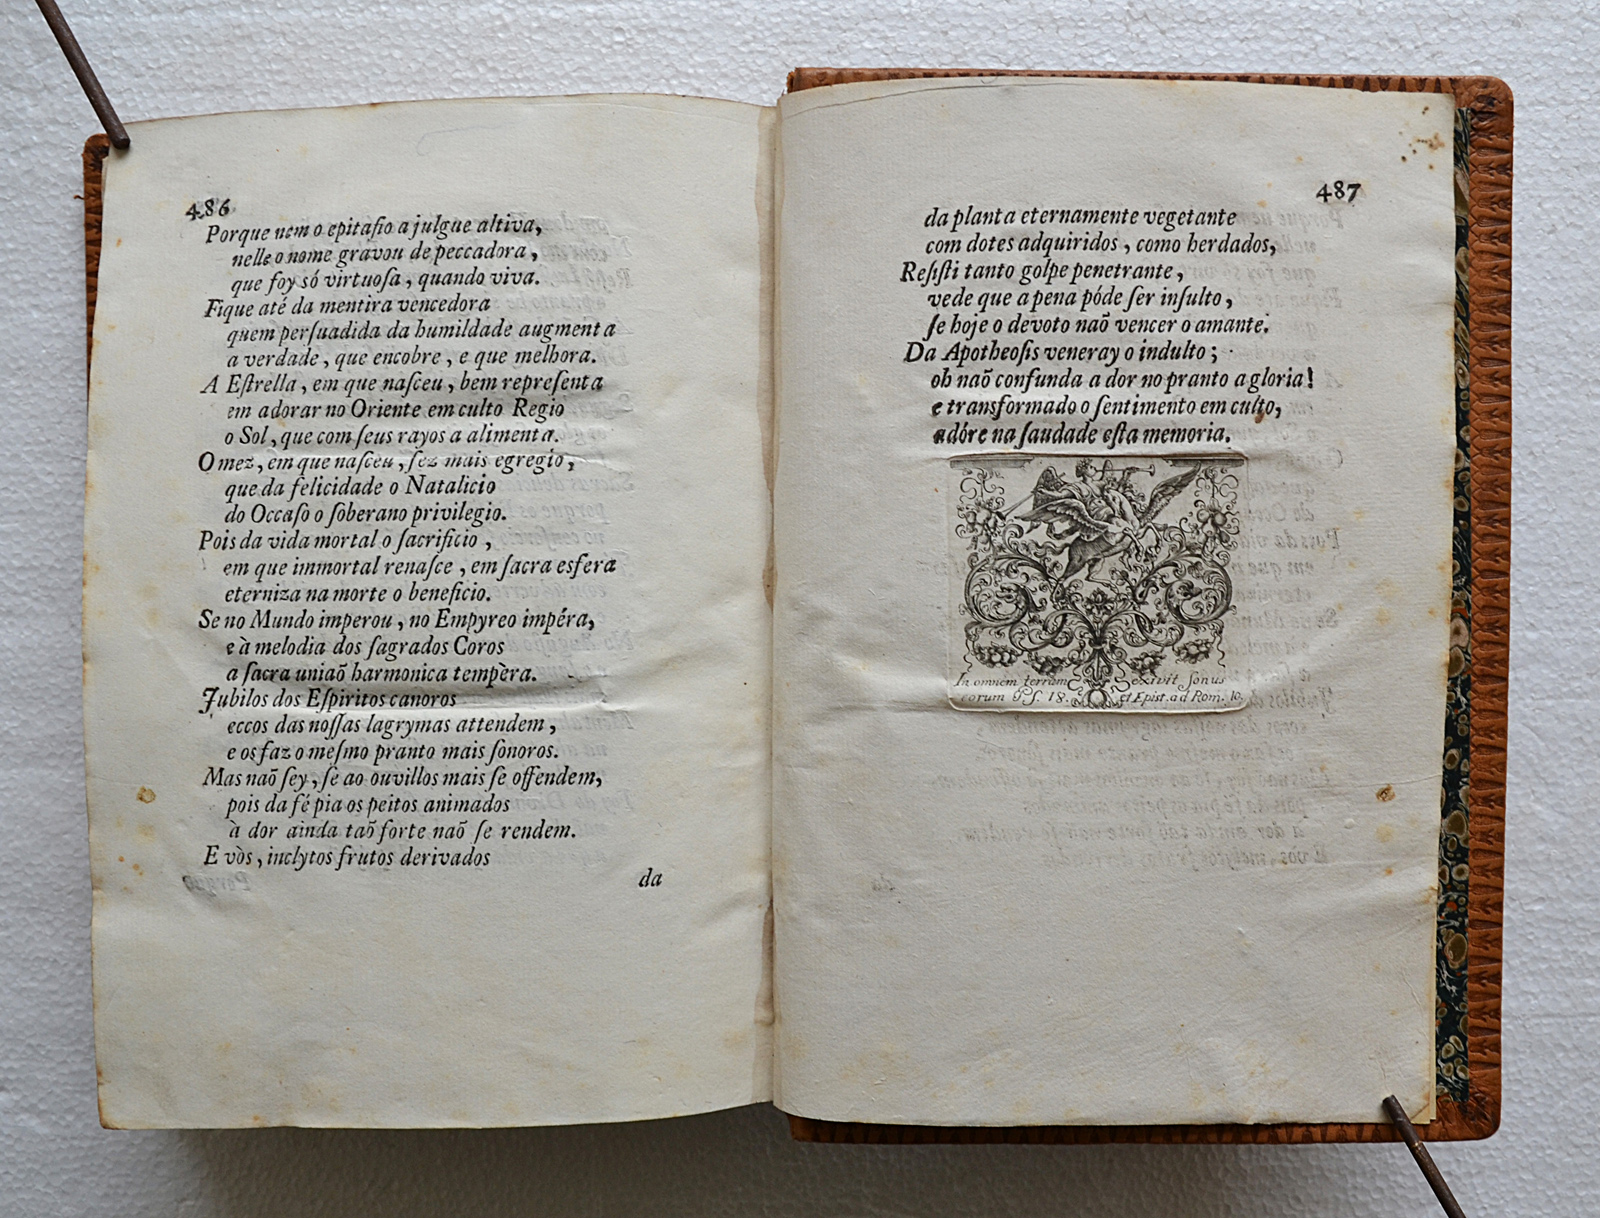 486
Porque nem o epitafio a julgue altiva,
nelle o nome gravou de peccadora,
que foy ſó virtuoſa, quando viva.
Fique até da mentira vencedora
quem perſuadida da humildade augmenta
a verdade, que encobre, e que melhora.
A Eſtrella, em que naſceu, bem repreſenta
em adorar no Oriente em culto Regio
o Sol, que com ſeus rayos a alimenta.
O mez, em que naſceu, fez mais egregio,
que da felicidade o Natalicio
do Occaſo o ſoberano privilegio.
Pois da vida mortal o ſacrificio,
em que immortal renaſce, em ſacra esfera
eterniza na morte o beneficio.
Se no Mundo imperou, no Empyreo impéra,
e à melodia dos ſagrados Coros
a ſacra uniaõ harmonica tempèra.
Jubilos dos Eſpiritos canoros
eccos das noſſas lagrymas attendem,
e os faz o meſmo pranto mais ſonoros.
Mas naõ ſey, ſe ao ouvillos mais ſe offendem,
pois da fé pia os peitos animados
à dor ainda taõ forte naõ ſe rendem.
E vòs, inclytos frutos derivados
da
487
da planta eternamente vegetante
com dotes adquiridos, como herdados,
Reſiſti tanto golpe penetrante,
vede que a pena póde ſer inſulto,
ſe hoje o devoto naõ vencer o amante.
Da Apotheoſis veneray o indulto;
oh naõ confunda a dor no pranto a gloria!
e transformado o ſentimento em culto,
adóre na ſaudade eſta memoria.
In omnem terram exivit ſonus
eorum Pſ. 18. et Epist. ad Rom. 10.